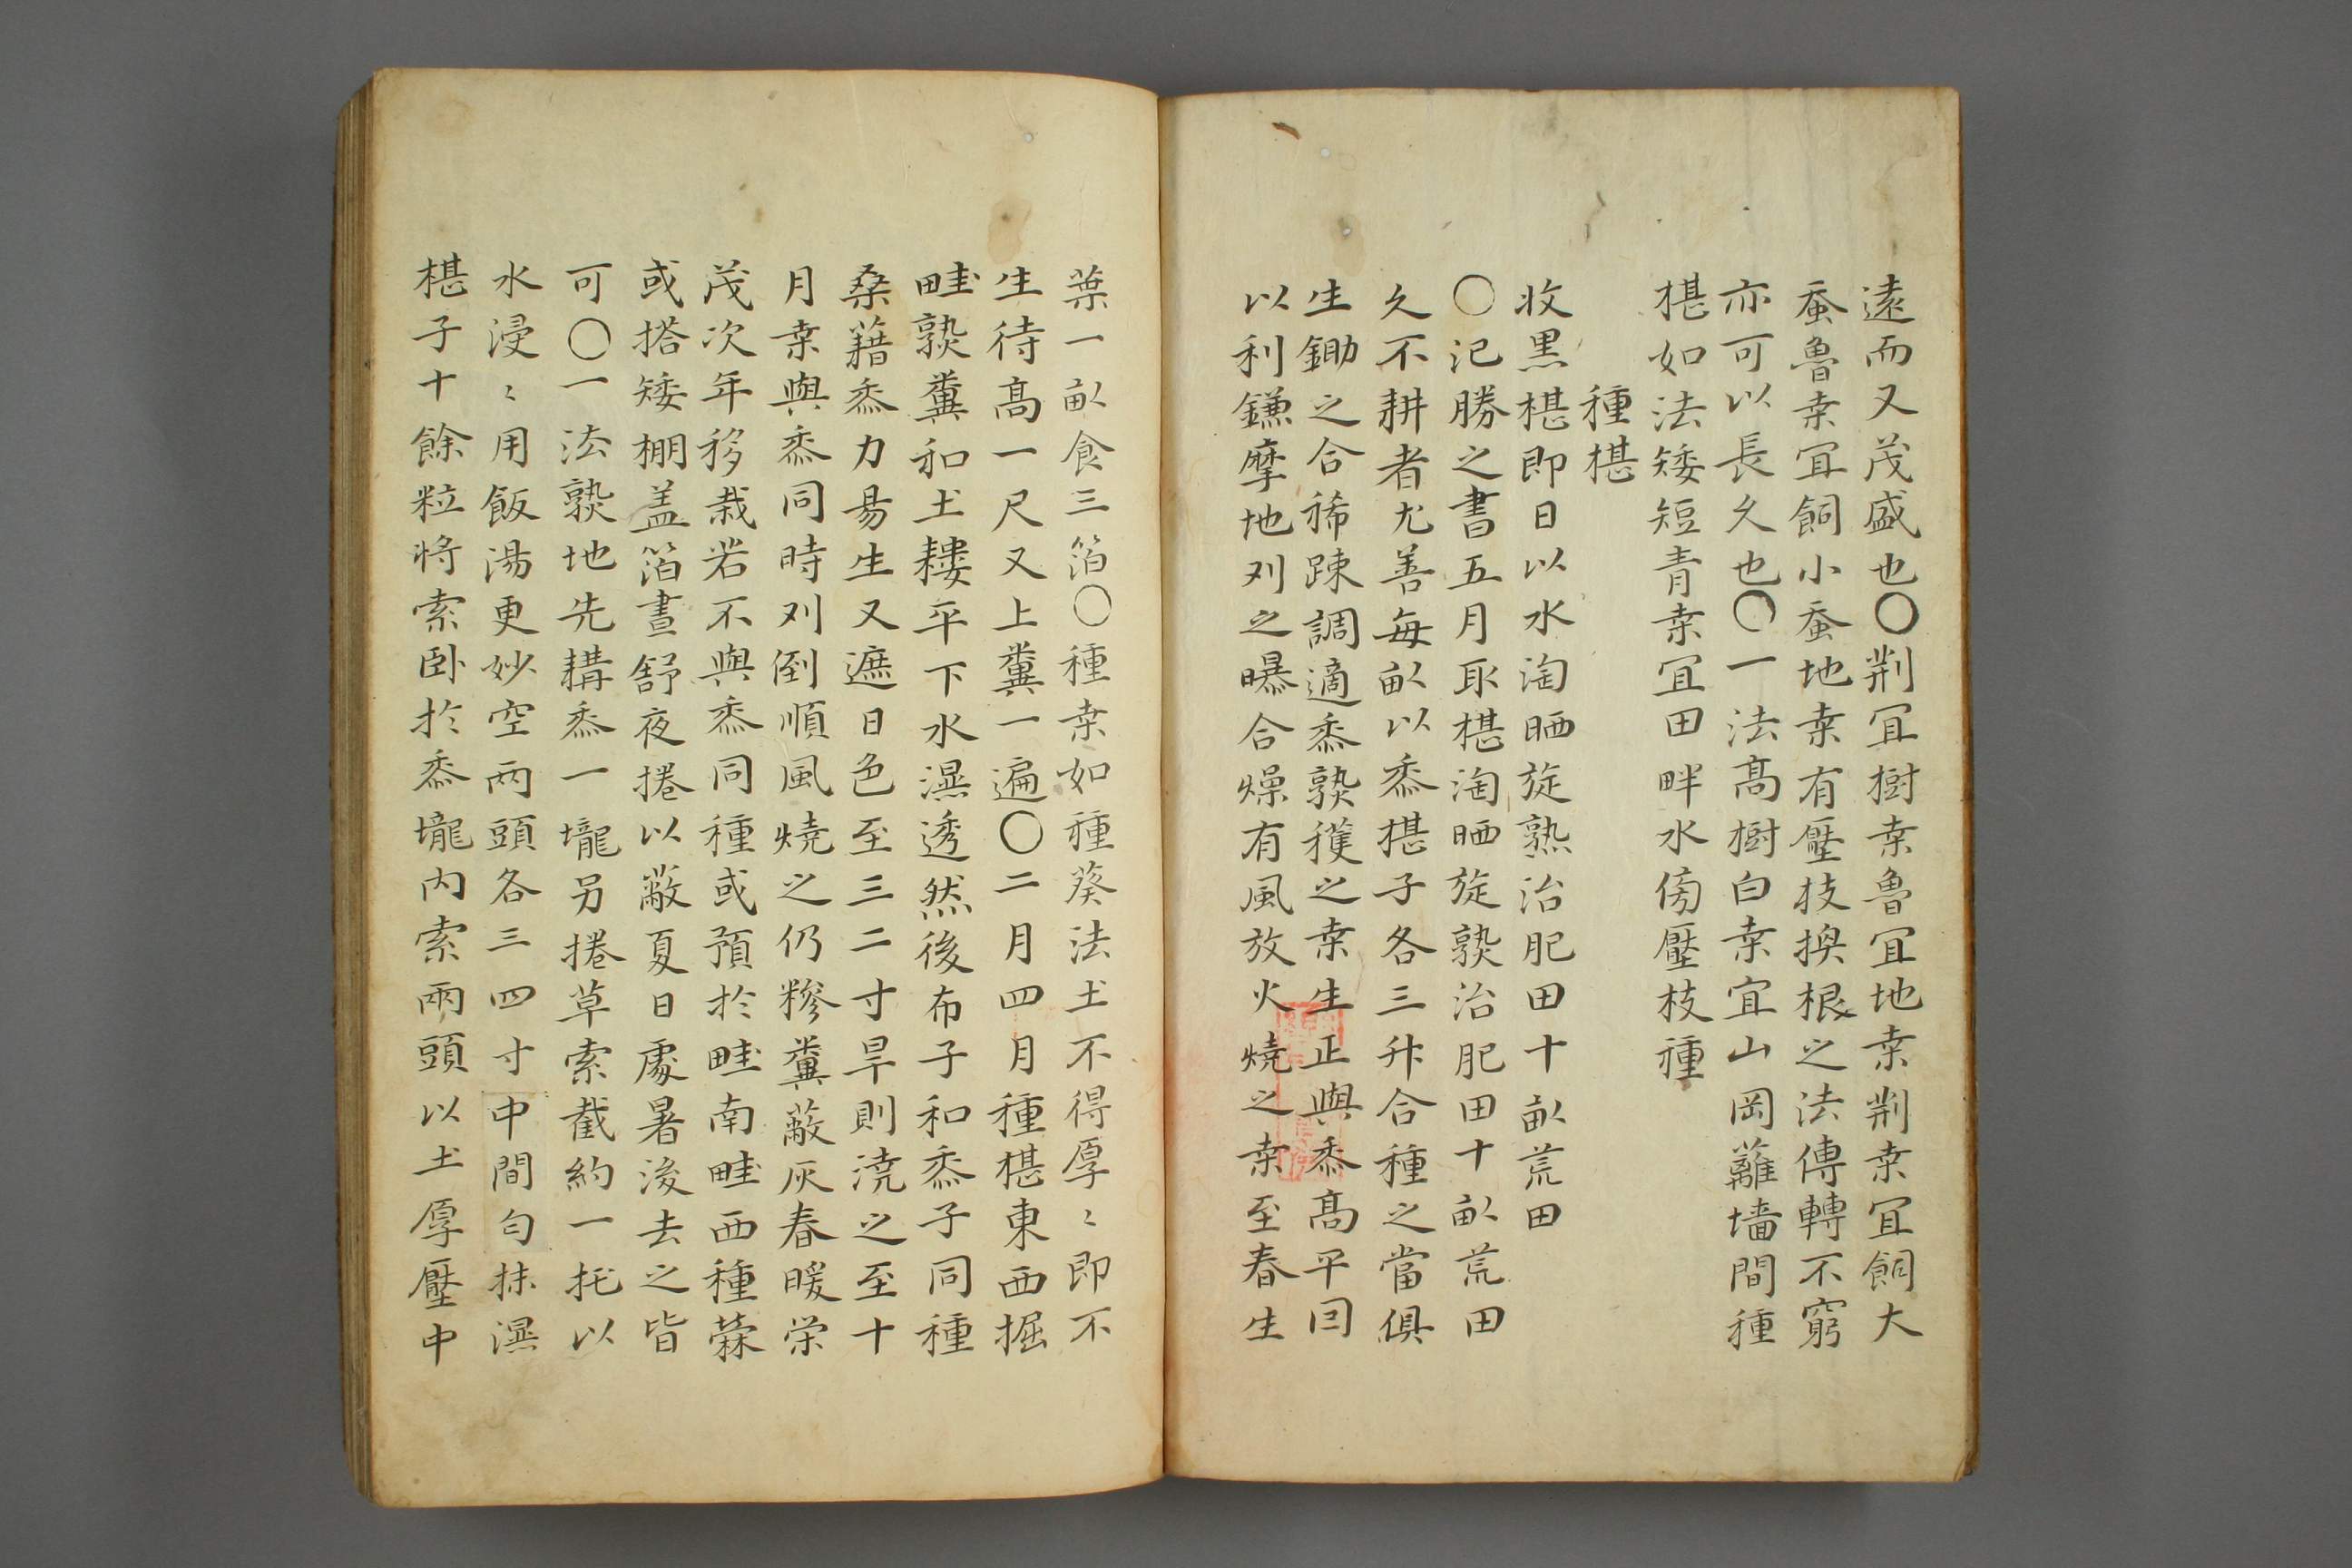 遠而又茂盛也〇荆宜樹桒魯宜地桒荆桒宜飼大
蚕魯桒宜飼小蚕地桒有壓枝換根之法傳轉不窮
亦可以長久也〇一法髙樹白桒宜山岡蘺墻間種
椹如法矮短青桒宜田畔水傍壓枝種
種椹
收黒椹即日以水淘晒旋熟治肥田十畝荒田
〇氾勝之書五月取椹淘晒旋熟治肥田十畝荒田
久不耕者尤善每畝以黍椹子各三升合種之當俱
生鋤之合稀踈調適黍熟穫之桒生正與黍髙平囙
以利鎌摩地刈之曝合燥有風放火燒之桒至春生
葉一畝食三箔〇種桒如種葵法土不得厚〻即不
生待髙一尺又上糞一遍〇二月四月種椹東西掘
畦熟糞和土耬平下水濕透然後布子和黍子同種
桑藉黍力易生又遮日色至三二寸旱則澆之至十
月桒與黍同時刈倒順風燒之仍糝糞蔽灰春暖荣
茂次年移栽若不與黍同種或預於畦南畦西種䕲
或搭矮棚盖箔晝舒夜捲以蔽夏日處暑後去之皆
可〇一法熟地先耩黍一壠另捲草索截約一托以
水浸〻用飯湯更妙空兩頭各三四寸中間匀抹濕
椹子十餘粒将索卧於黍壠内索兩頭以土厚壓中